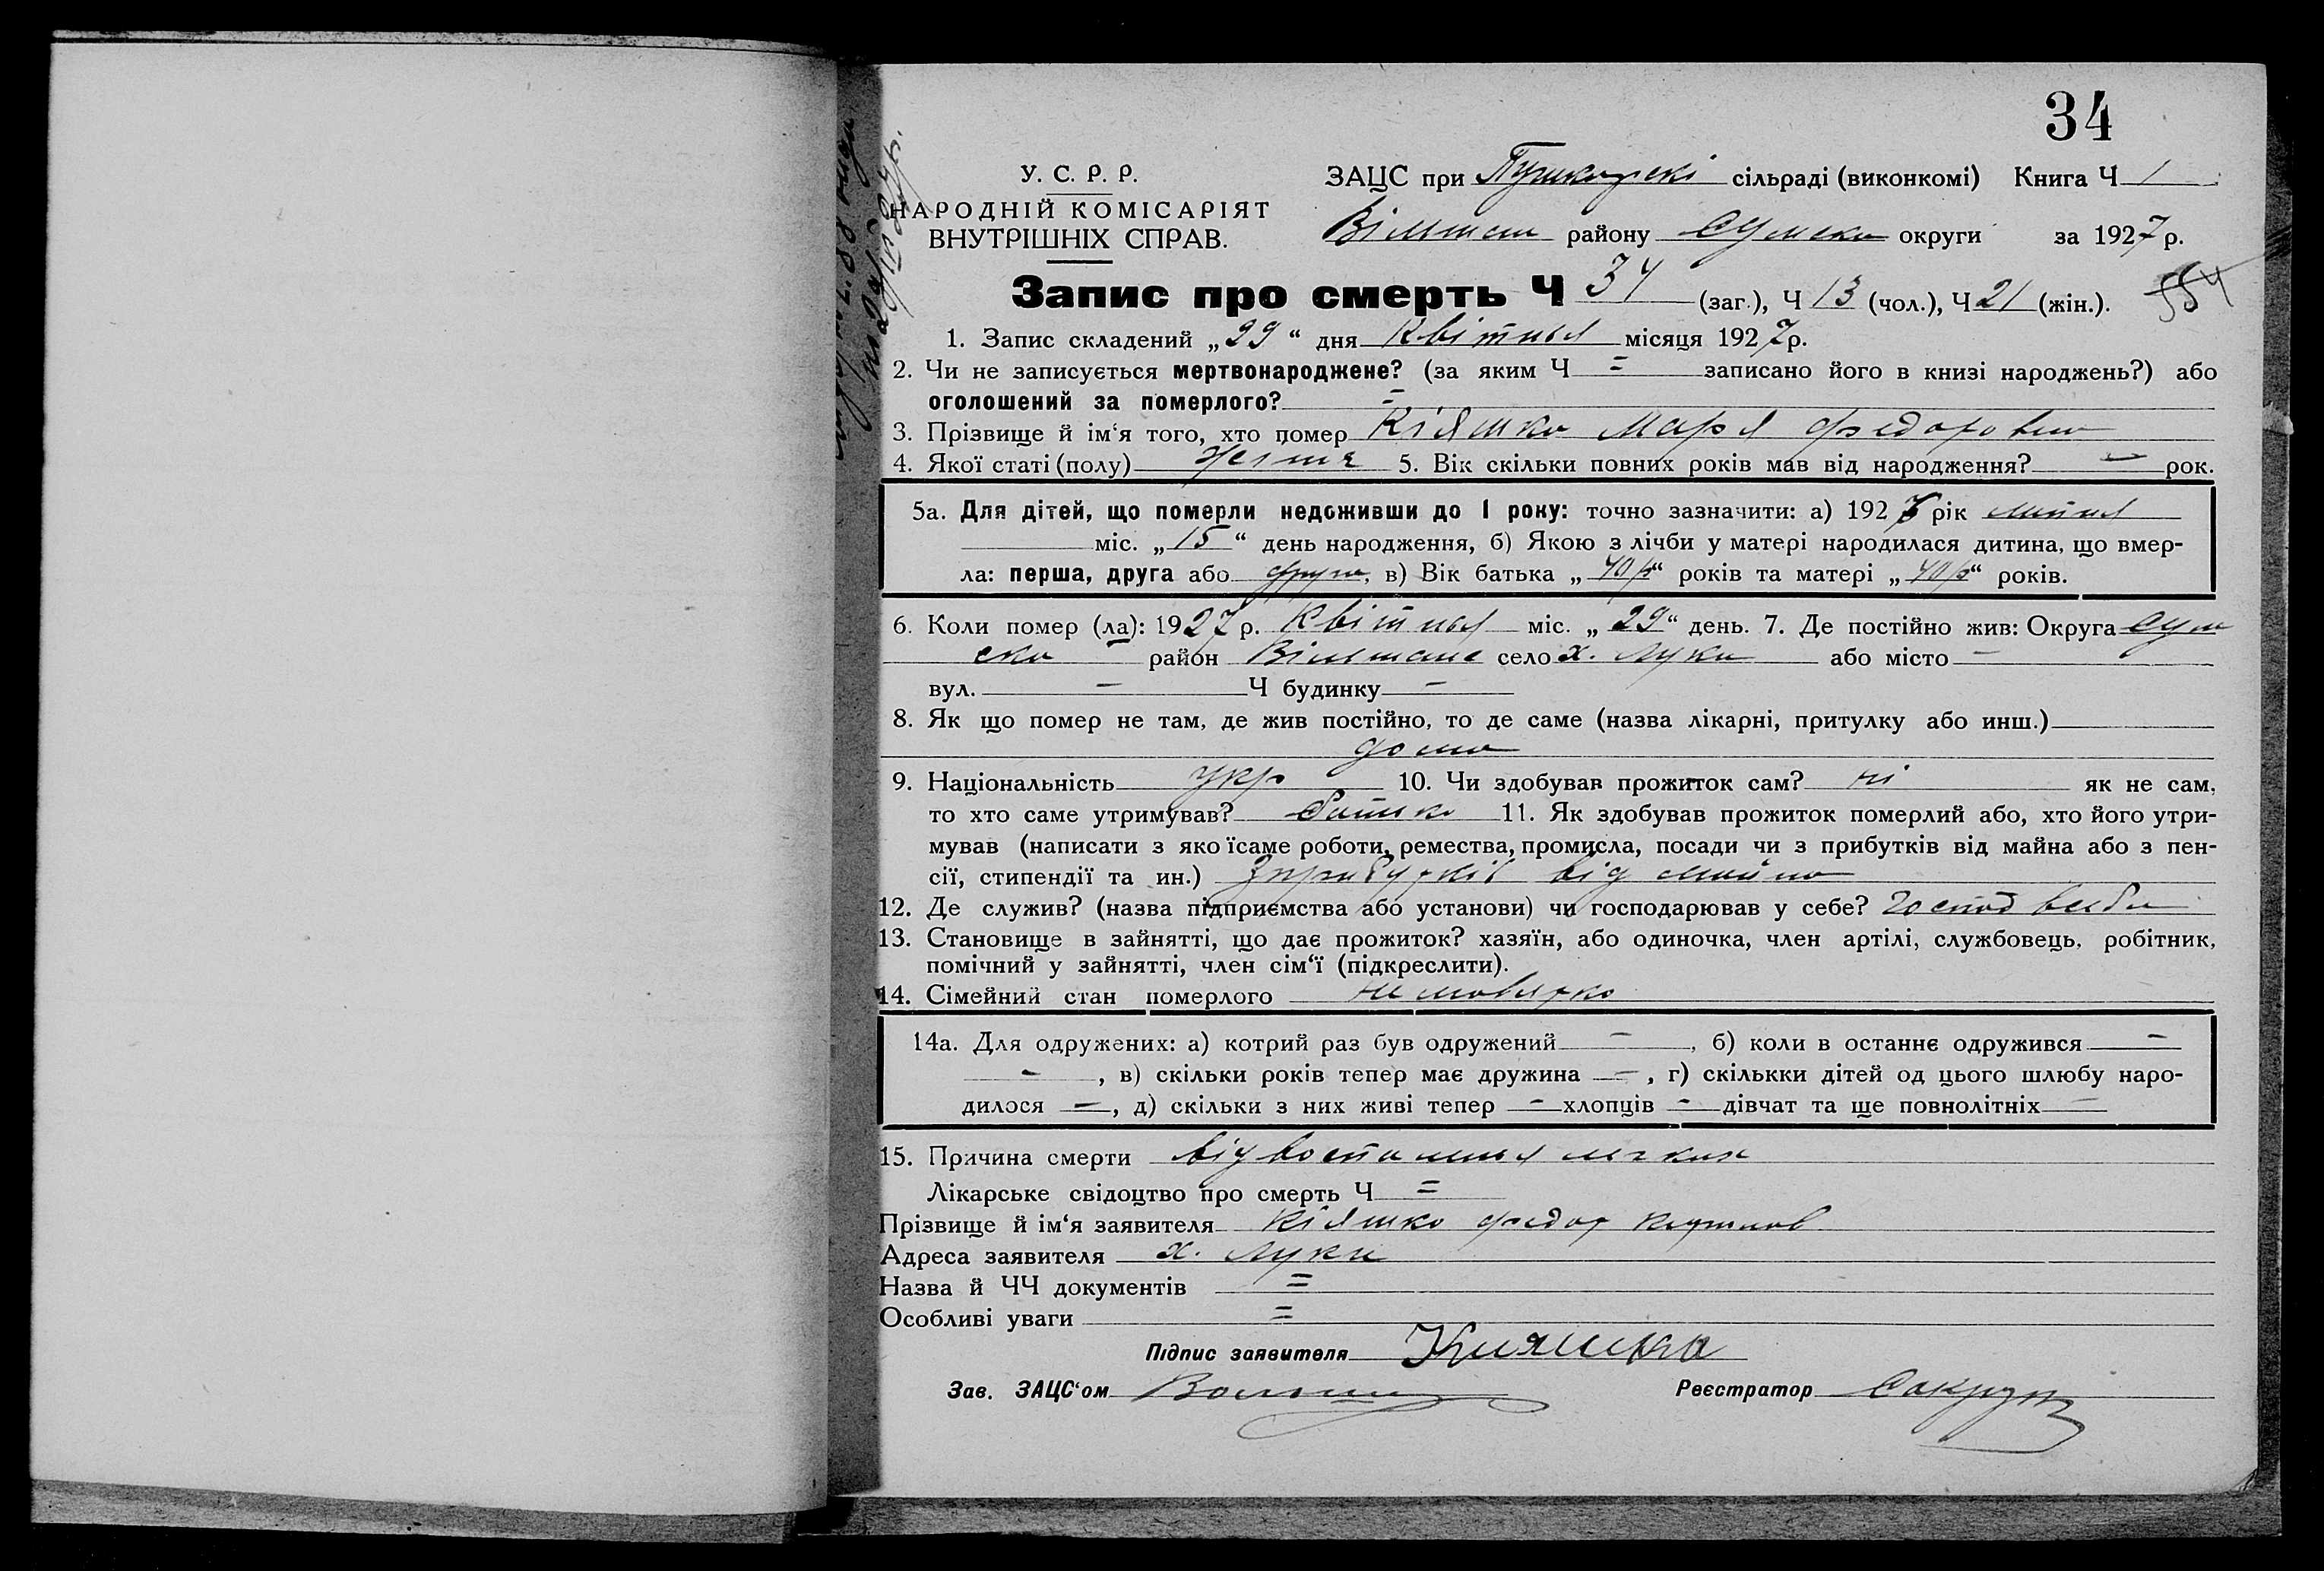 34
У. С. Р. Р.
НАРОДНІЙ КОМІСАРІЯТ
ВНУТРІШНІХ СПРАВ.
ЗАЦС при Пушкарскі сільраді (виконкомі) Книга Ч 1
району Сумська округи за 1927 р.
Запис про смерть Ч 34 (заг.), Ч 13 (чол.), Ч 21 (жін.).
1. Запис складений „29“ дня Квітня місяця 1927р.
2. Чи не записується мертвонароджене? (за яким Ч = записано його в книзі народжень?) або
оголошений за померлого? =
3. Прізвище й ім‘я того, хто помер Кіяшко Марія Федоровна
4. Якої статі (полу) 5. Вік скільки повних років мав від народження? — рок.
5а. Для дітей, що померли недоживши до 1 року: точно зазначити: а) 192 рік
міс. „15“ день народження, б) Якою з лічби у матері народилася дитина, що вмер-
ла: перша, друга або друга, в) Вік батька „40 р“ років та матері „40 р“ років.
6. Коли помер (ла): 1927 р. Квітня міс. „29“ день. 7. Де постійно жив: Округа Сум
ска район село х. Луки або місто —
вул. — Ч будинку —
8. Як що помер не там, де жив постійно, то де саме (назва лікарні, притулку або инш.)
дома
9. Національність укр 10. Чи здобував прожиток сам? ні як не сам,
то хто саме утримував? батько 11. Як здобував прожиток померлий або, хто його утри-
мував (написати з якоїсаме роботи, ремества, промисла, посади чи з прибутків від майна або з пен-
сії, стипендії та ин.) Зприбутків від майна
12. Де служив? (назва підприємства або установи) чи господарював у себе? Господ
13. Становище в зайнятті, що дає прожиток? хазяїн, або одиночка, член артілі, службовець, робітник,
помічний у зайнятті, член сім‘ї (підкреслити).
14. Сімейний стан померлого немовлятко
14а. Для одружених: а) котрий раз був одружений —, б) коли в останнє одружився —
—, в) скільки років тепер має дружина —, г) скількки дітей од цього шлюбу наро-
дилося —, д) скільки з них живі тепер — хлопців — дівчат та ще повнолітніх —
15. Причина смерти від воспалення легких
Лікарське свідоцтво про смерть Ч =
Прізвище й ім‘я заявителя Кіяшко Федор
Адреса заявителя х. Луки
Назва й ЧЧ документів =
Особливі уваги =
Підпис заявителя Кияшко
Зав. ЗАЦС‘ом
Реєстратор